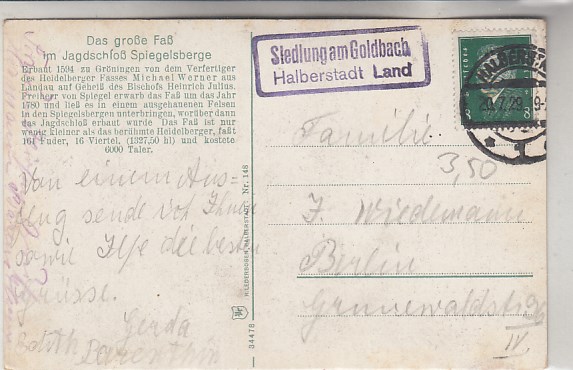 Das große Faß
im Jagdschloß Spiegelsberge
Erbaut 1594 zu Gröningen von dem Verfertiger
des Heidelberger Fasses Michael Werner aus
Landau auf Geheiß des Bischofs Heinrich Julius.
Freiherr von Spiegel erwarb das Faß um das Jahr
1780 und ließ es in einem ausgehauenen Felsen
in den Spiegelsbergen unterbringen, worüber dann
das Jagdschloß erbaut wurde. Das Faß ist nur
wenig kleiner als das berühmte Heidelberger, faßt
161 Fuder, 16 Viertel, (1327,50 hl) und kostete
6000 Taler.
Von einem Aus-
flug sendet Ihnen
sowie Ilse die besten
Grüsse.
Gerda
Edith
H. LEDERBOGEN, HALBERSTADT. Nr. 148
84478
Siedlung am Goldbach
Halberstadt Land
HALBERSTADT
29.7.29 9-
8 8
Familie
3,50
J. Wiedemann
Berlin
Grunewaldstr. 96
IV.